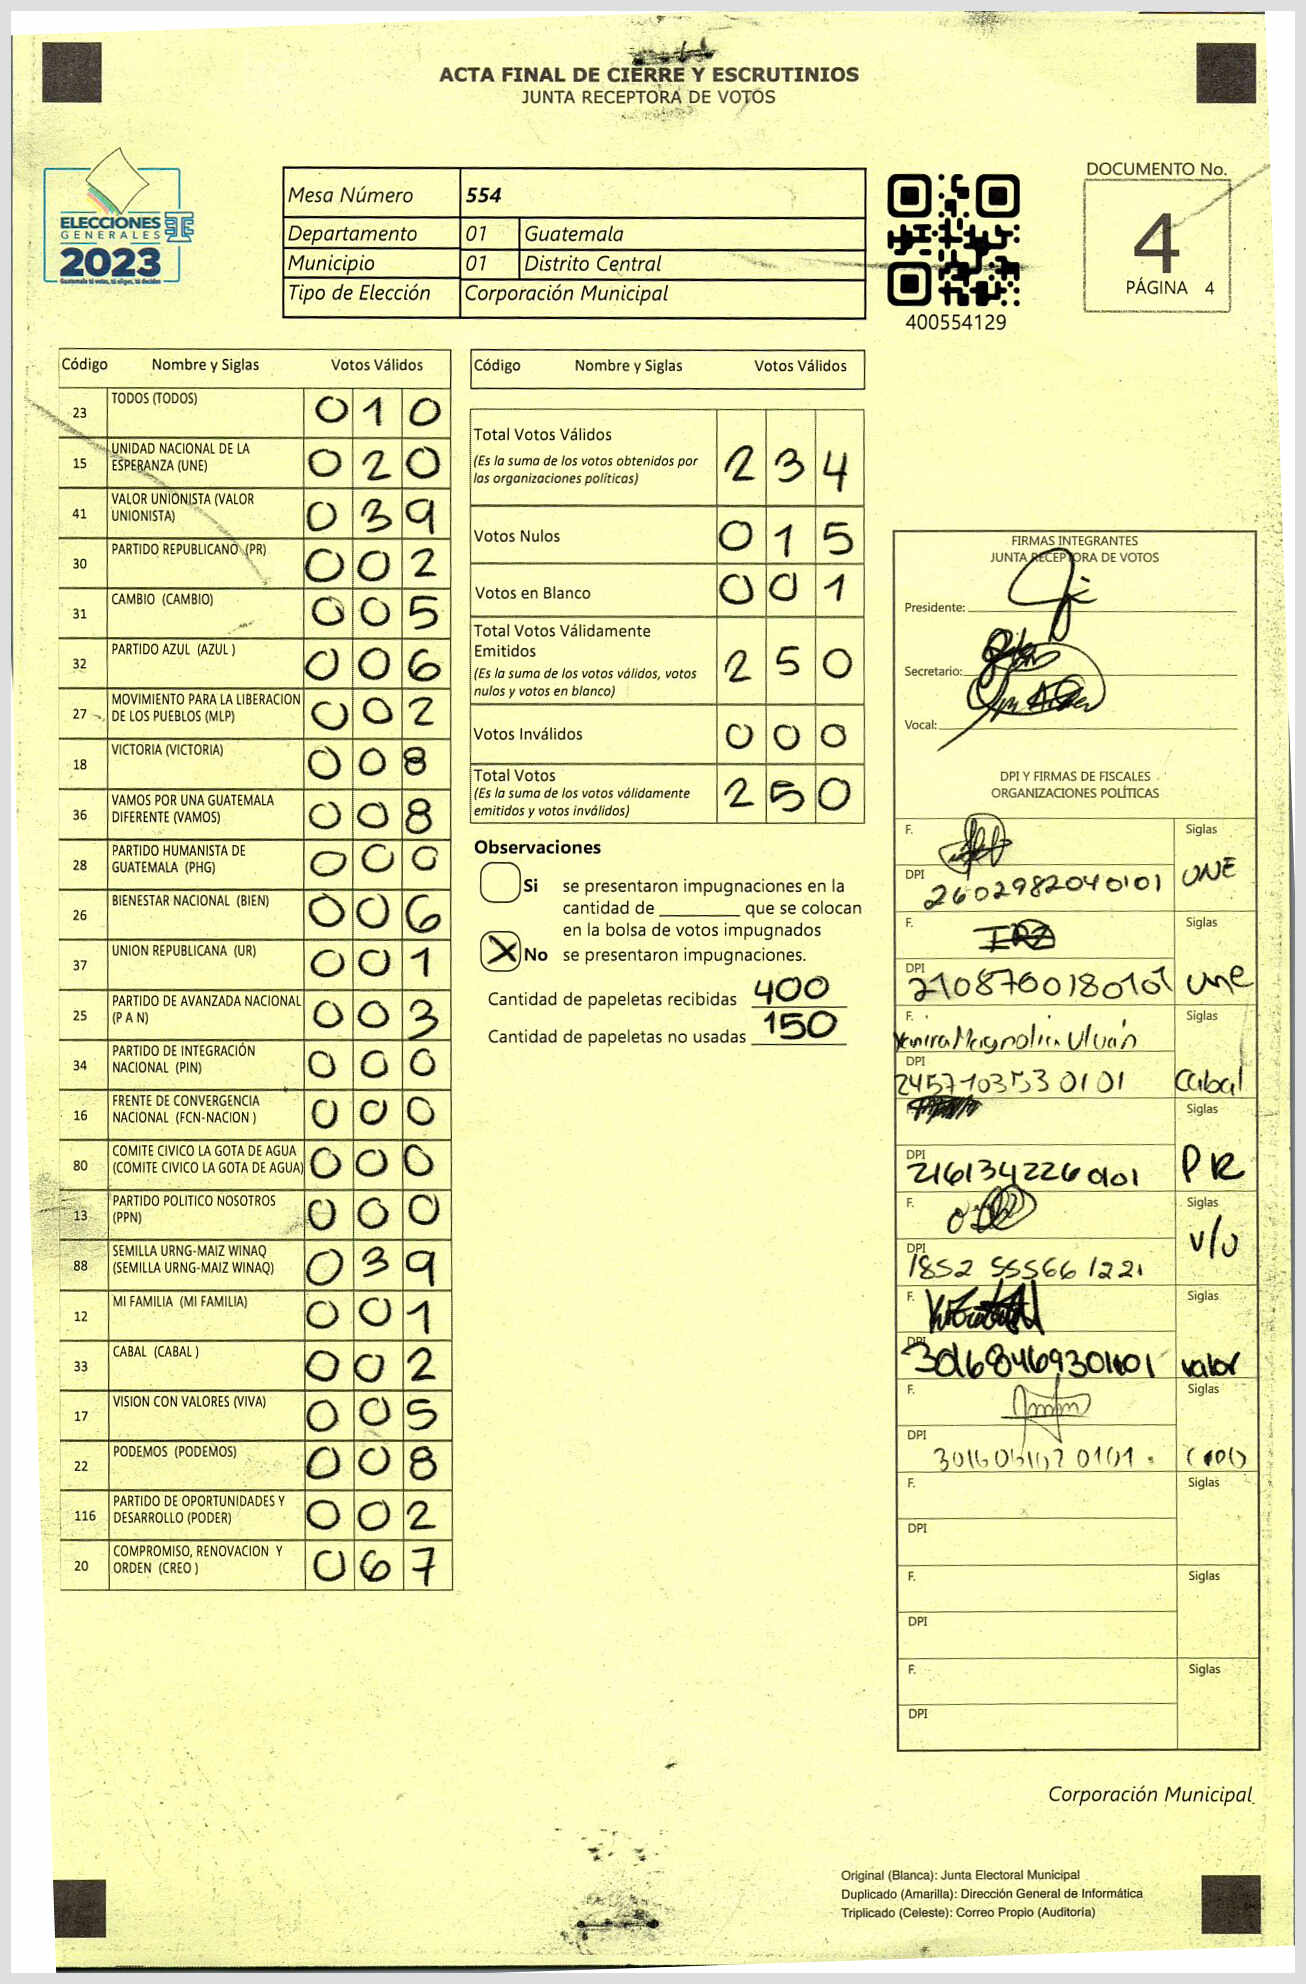 ACTA FINAL DE CIERRE Y ESCRUTINIOS
JUNTA RECEPTORA DE VOTOS
ELECCIONES
GENERALES
2023
Guatemala tú votas, tú eliges, tú decides
Mesa Número 554
Departamento 01 Guatemala
Municipio 01 Distrito Central
Tipo de Elección Corporación Municipal
400554129
DOCUMENTO No.
4
PÁGINA 4
Código Nombre y Siglas Votos Válidos
23 TODOS (TODOS) 0 1 0
15 UNIDAD NACIONAL DE LA
ESPERANZA (UNE) 0 2 0
41 VALOR UNIONISTA (VALOR
UNIONISTA) 0 3 9
30 PARTIDO REPUBLICANO (PR) 0 0 2
31 CAMBIO (CAMBIO) 0 0 5
32 PARTIDO AZUL (AZUL ) 0 0 6
27 MOVIMIENTO PARA LA LIBERACION
DE LOS PUEBLOS (MLP) 0 0 2
18 VICTORIA (VICTORIA) 0 0 8
36 VAMOS POR UNA GUATEMALA
DIFERENTE (VAMOS) 0 0 8
28 PARTIDO HUMANISTA DE
GUATEMALA (PHG) 0 0 0
26 BIENESTAR NACIONAL (BIEN) 0 0 6
37 UNION REPUBLICANA (UR) 0 0 1
25 PARTIDO DE AVANZADA NACIONAL
(P A N) 0 0 3
34 PARTIDO DE INTEGRACIÓN
NACIONAL (PIN) 0 0 0
16 FRENTE DE CONVERGENCIA
NACIONAL (FCN-NACION ) 0 0 0
80 COMITE CIVICO LA GOTA DE AGUA
(COMITE CIVICO LA GOTA DE AGUA) 0 0 0
13 PARTIDO POLITICO NOSOTROS
(PPN) 0 0 0
88 SEMILLA URNG-MAIZ WINAQ
(SEMILLA URNG-MAIZ WINAQ) 0 3 9
12 MI FAMILIA (MI FAMILIA) 0 0 1
33 CABAL (CABAL ) 0 0 2
17 VISION CON VALORES (VIVA) 0 0 5
22 PODEMOS (PODEMOS) 0 0 8
116 PARTIDO DE OPORTUNIDADES Y
DESARROLLO (PODER) 0 0 2
20 COMPROMISO, RENOVACION Y
ORDEN (CREO ) 0 6 7
Código Nombre y Siglas Votos Válidos
Total Votos Válidos
(Es la suma de los votos obtenidos por
las organizaciones políticas) 2 3 4
Votos Nulos 0 1 5
Votos en Blanco 0 0 1
Total Votos Válidamente
Emitidos
(Es la suma de los votos válidos, votos
nulos y votos en blanco) 2 5 0
Votos Inválidos 0 0 0
Total Votos
(Es la suma de los votos válidamente
emitidos y votos inválidos) 2 5 0
Observaciones
Si se presentaron impugnaciones en la
cantidad de ________ que se colocan
en la bolsa de votos impugnados
X No se presentaron impugnaciones.
Cantidad de papeletas recibidas 400
Cantidad de papeletas no usadas 150
FIRMAS INTEGRANTES
JUNTA RECEPTORA DE VOTOS
Presidente:
Secretario:
Vocal:
DPI Y FIRMAS DE FISCALES
ORGANIZACIONES POLÍTICAS
F. Siglas
DPI 2602982040101 UNE
F. Siglas
DPI 2108760180101 une
F. Magnolia Siglas
DPI 2457103530101 Cabal
Siglas
DPI 216134226 0101 PR
F. Siglas
DPI 1852 55566 1221 v/u
F. Siglas
DPI valor
F. Siglas
DPI
F. Siglas
DPI
F. Siglas
DPI
F. Siglas
DPI
Corporación Municipal
Original (Blanca): Junta Electoral Municipal
Duplicado (Amarilla): Dirección General de Informática
Triplicado (Celeste): Correo Propio (Auditoría)